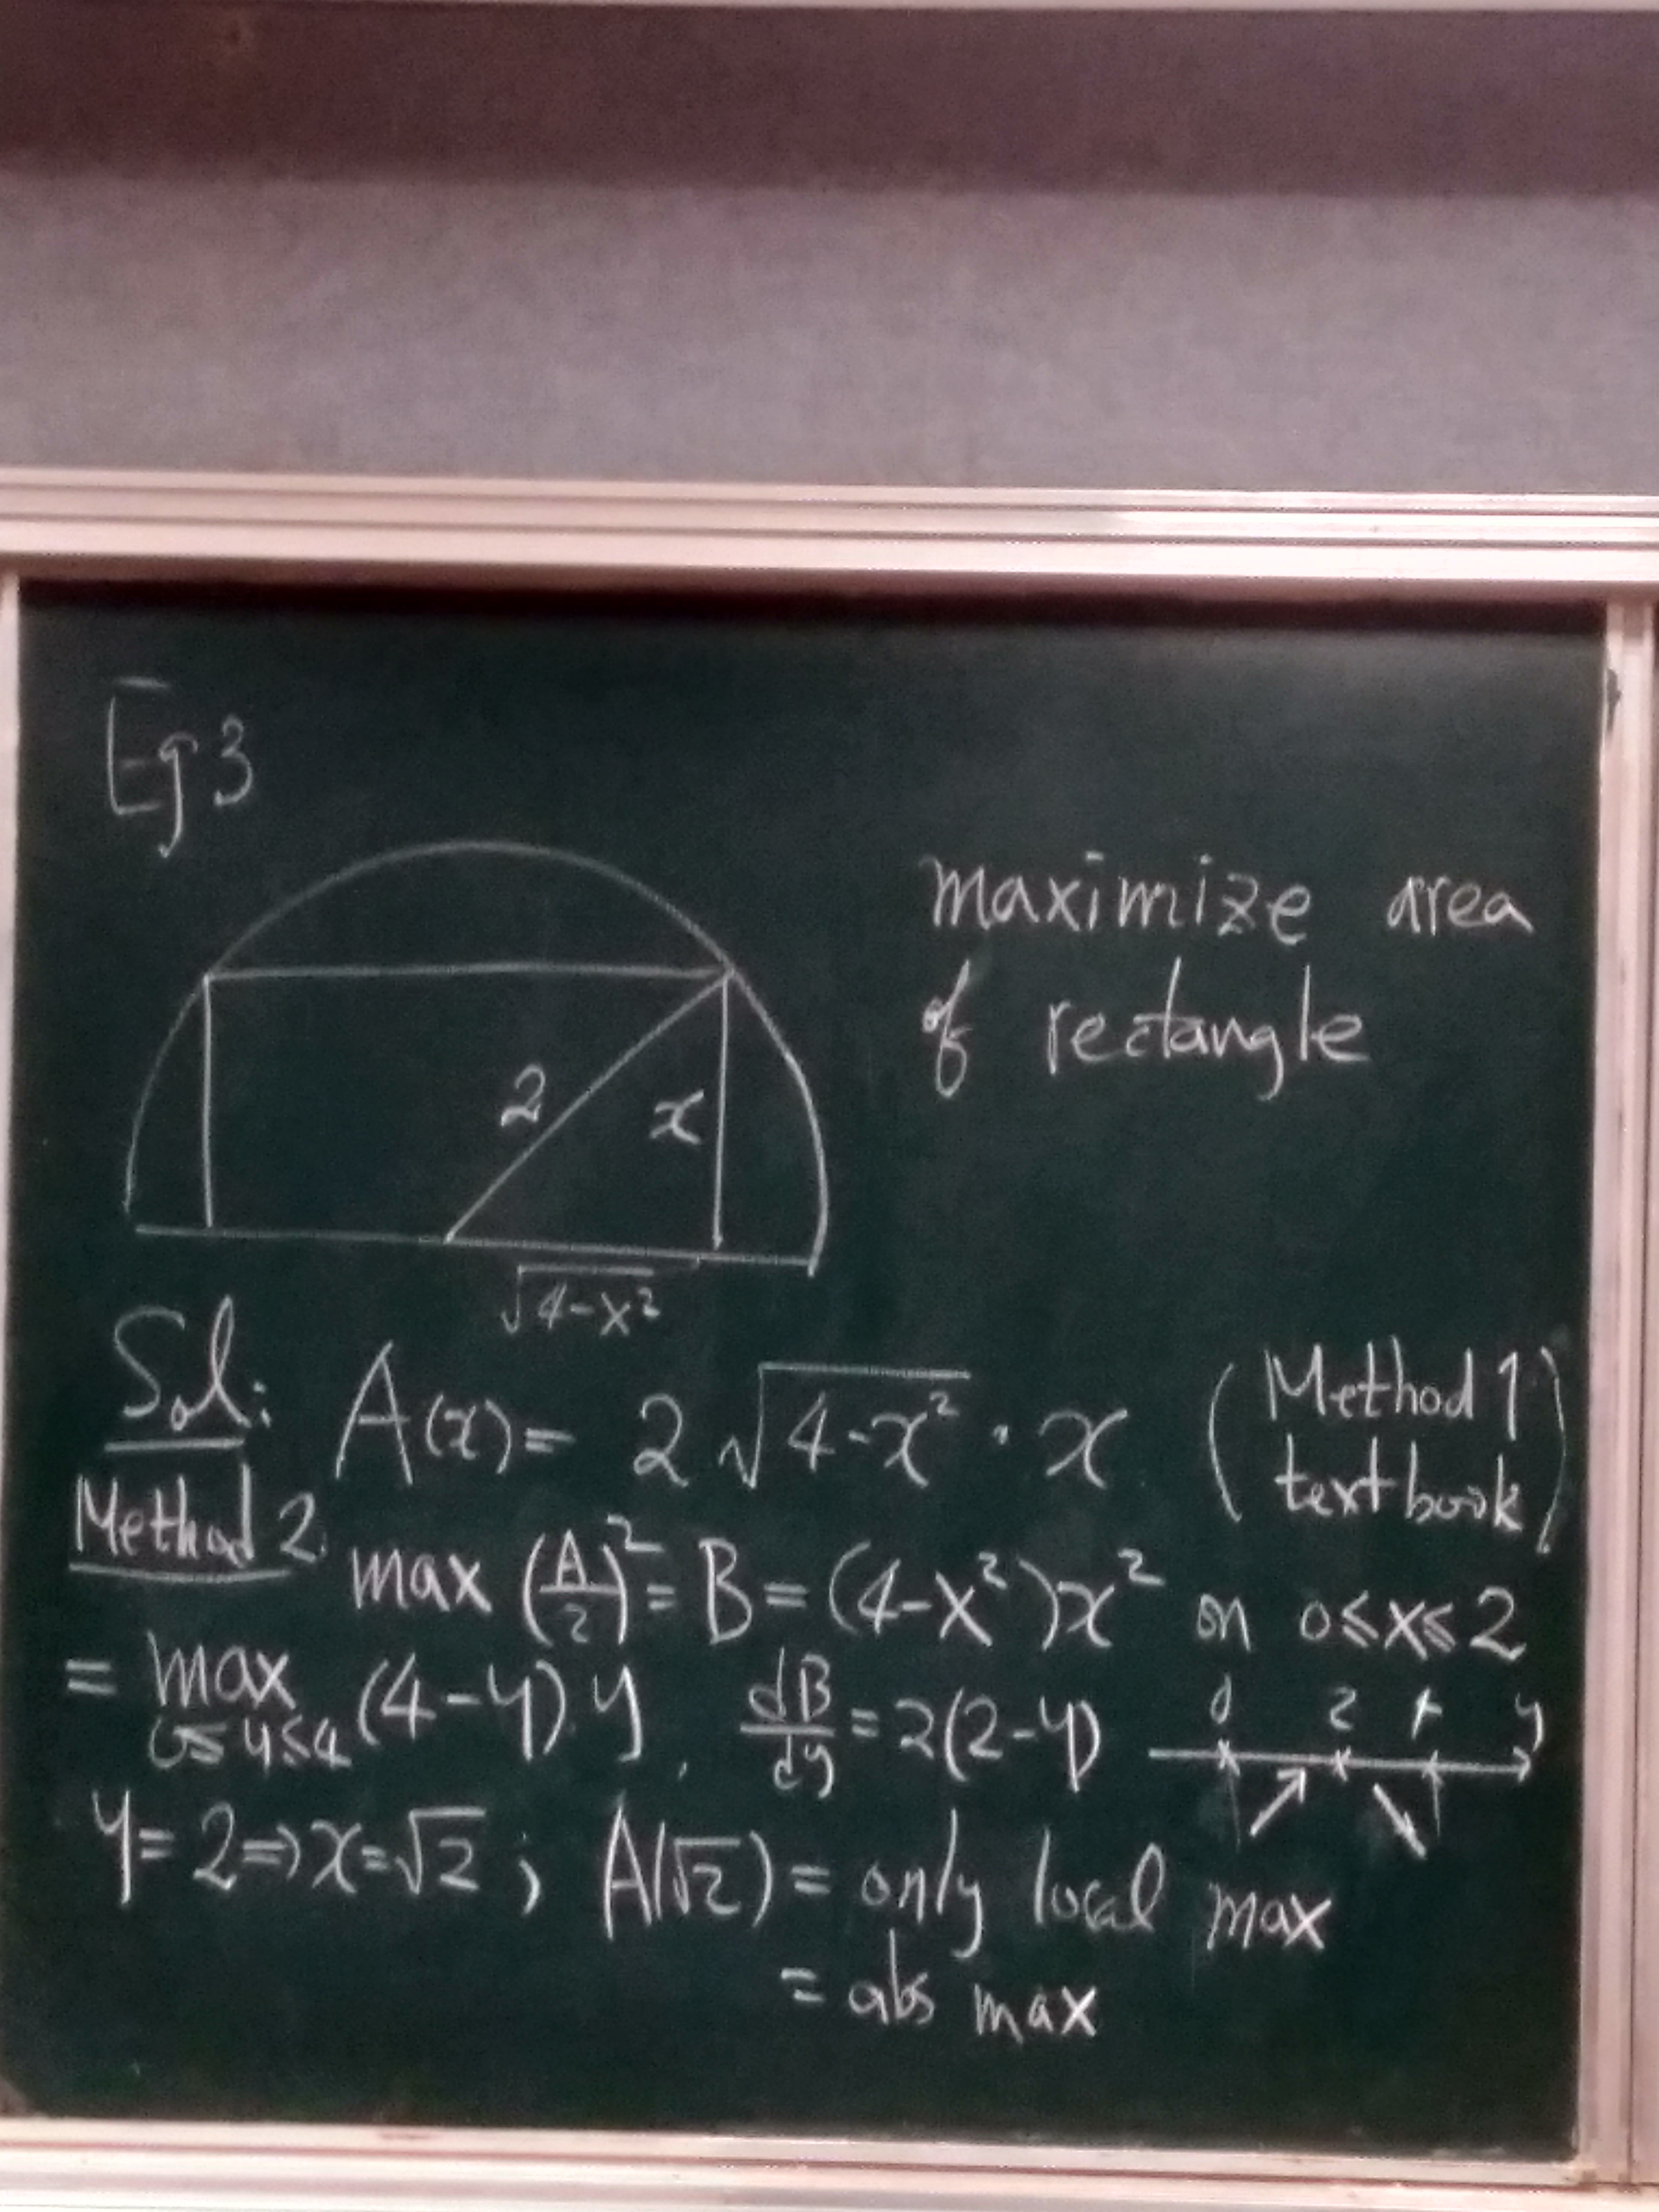 Eg 3
maximize area
of rectangle
2 x
√4-x²
Sol: A(x) = 2 √4-x² · x (Method 1
textbook)
Method 2
max (A/2)² = B = (4-x²)x² on 0≤x≤2
= max 0≤y≤4 (4-y) y, dB/dy = 2(2-y) 0 2 4 y
y=2⇒x=√2 ; A(√2) = only local max
= abs max